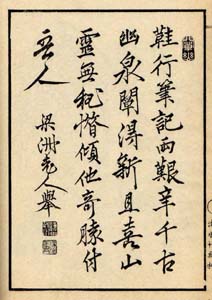 鞋行筆記両艱辛千古
幽泉闡得新且喜山
靈無秕惜傾他奇勝付
吾人
梁洲老人舉